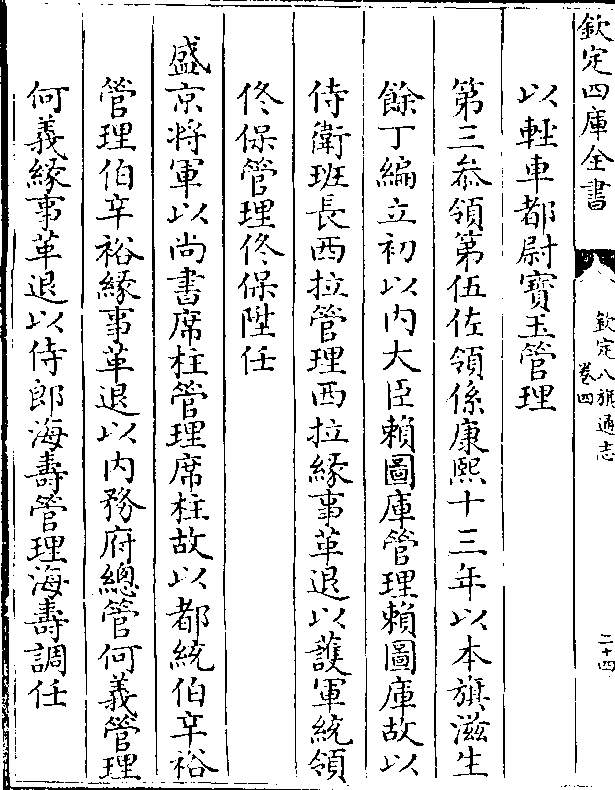 欽定四庫全書
欽定八旗通志
卷四
二十四
以輕車都尉寶玉管理
第三叅領第伍佐領係康熙十三年以本旗滋生
餘丁編立初以内大臣賴圖庫管理賴圖庫故以
侍衛班長西拉管理西拉緣事革退以護軍統領
佟保管理佟保陞任
盛京将軍以尚書席柱管理席柱故以都統伯辛裕
管理伯辛裕緣事革退以内務府總管何義管理
何義緣事革退以侍郎海壽管理海壽調任